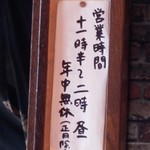 営業時間
十一時半〜二時 昼
年中無休(正月除